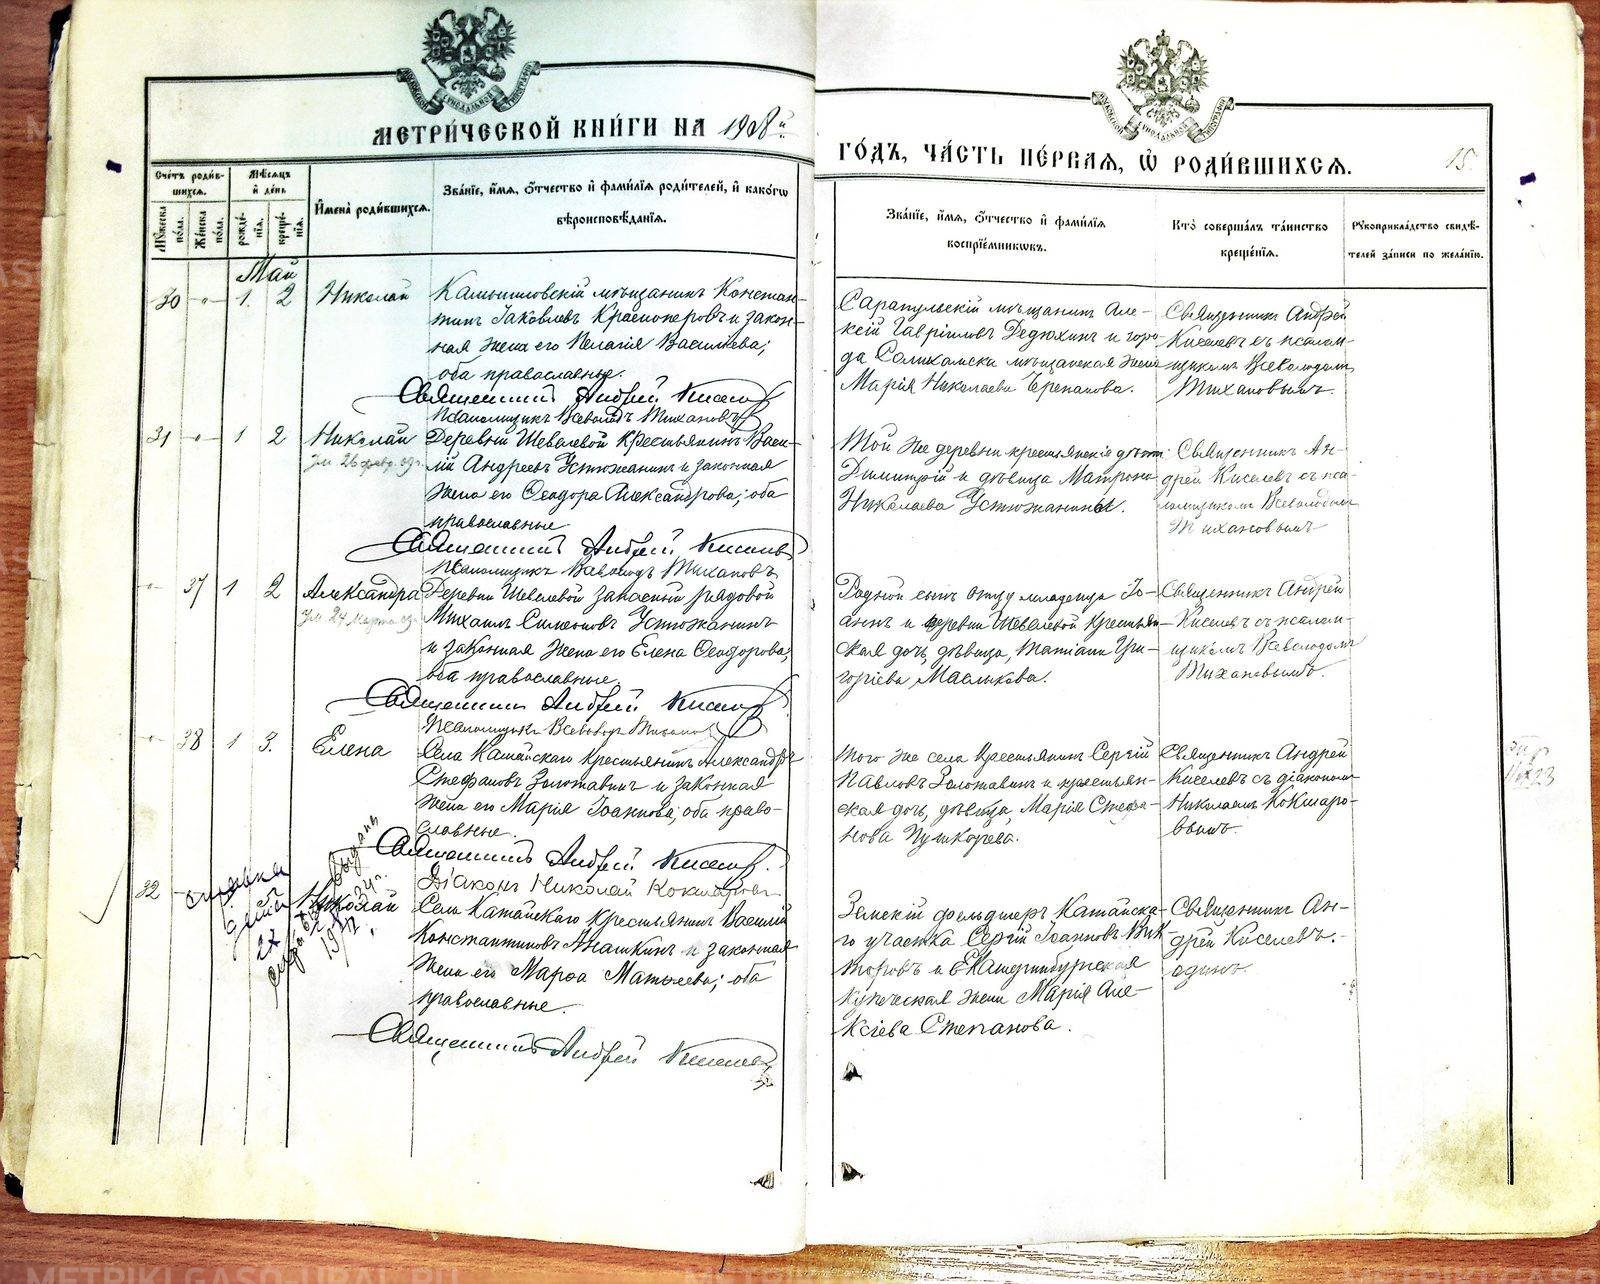 МЕТРИ́ЧЕСКОЙ КНИ́ГИ НА 1908й
ГО́ДЪ, ЧА́СТЬ ПЕ́РВАЯ, Ѡ҆ РОДИ́ВШИХСЯ.
15.
Сче́тъ роди́в-
шихся.
Мꙋ́жеска по́ла.
Же́нска по́ла.
Мѣ́сяцъ
и҆ де́нь
рожде́нїя.
креще́нїя.
И҆мена̀ роди́вшихся.
Зва́нїе, и҆́мя, ѻ҆́тчество и҆ фами́лїя роди́телей, и҆ како́гѡ
вѣроисповѣ́данїя.
Зва́нїе, и҆́мя, ѻ҆́тчество и҆ фами́лїя
воспрїе́мникѡвъ.
Кто̀ соверша́лъ та́инство
креще́нїя.
Рꙋкоприкла́дство свидѣ́-
телей за́писи по жела́нїю.
Май
30 1. 2 Николай
Камышловскій мѣщанинъ Констан-
тинъ Іаковлевъ Красноперовъ и закон-
ная жена его Пелагія Васильева;
оба православные.
Священникъ Андрей Киселев
Псаломщикъ Всеволодъ Тихановъ
Сарапульскій мѣщанинъ Але-
ксій Гавріиловъ Дедюхинъ и горо-
да Соликамска мѣщанская жена
Марія Николаева Черепанова.
Священникъ Андрей
Киселевъ съ псалом-
щикомъ Всеволодомъ
Тихановымъ.
31 1 2 Николай
Ум. 26 февр. 09 г.
Деревни Шевалевой крестьянинъ Васи-
лій Андреевъ Устюжанинъ и законная
жена его Ѳеодора Александрова; оба
православные
Священникъ Андрей Киселевъ
Псаломщикъ Всеволодъ Тихановъ
Той же деревни крестьянскія дѣти
Димитрій и дѣвица Матрона
Николаева Устюжанины.
Священникъ Ан-
дрей Киселевъ съ пса-
ломщикомъ Всеволодомъ
Тихановымъ
37 1 2 Александра
Ум. 24 марта 09
Деревни Шевелевой запасный рядовой
Михаилъ Симеоновъ Устюжанинъ
и законная жена его Елена Ѳеодорова;
оба православные.
Священникъ Андрей Киселев
Псаломщикъ Всеволодъ Тиханов
Родной сынъ отцу младенца Іо-
аннъ и деревни Шевалевой крестьян-
ская дочь, дѣвица, Татіана Гри-
горіева Маслыкова.
Священникъ Андрей
Киселевъ съ псалом-
щикомъ Всеволодомъ
Тихановымъ.
38 1 3. Елена
Села Катайскаго крестьянинъ Александръ
Стефановъ Золотавинъ и законная
жена его Марія Іоаннова; оба право-
славные.
Священникъ Андрей Киселев.
Діаконъ Николай Кокшаровъ
Того же села крестьянинъ Сергій
Павловъ Золотавинъ и крестьян-
ская дочь, дѣвица, Марія Стефа-
нова Пушкарева.
Священникъ Андрей
Киселевъ съ діакономъ
Николаемъ Кокшаро-
вымъ.
32 Николай
справка
выдана
Села Катайскаго крестьянинъ Василій
Константиновъ Анашкинъ и законная
жена его Марѳа Матѳеева; оба
православные.
Священникъ Андрей Киселев
Земскій фельдшеръ Катайска-
го участка Сергій Іоанновъ Вик-
торовъ и Екатеринбургская
купеческая жена Марія Але-
ксіева Степанова.
Священникъ Ан-
дрей Киселевъ.-
одинъ.